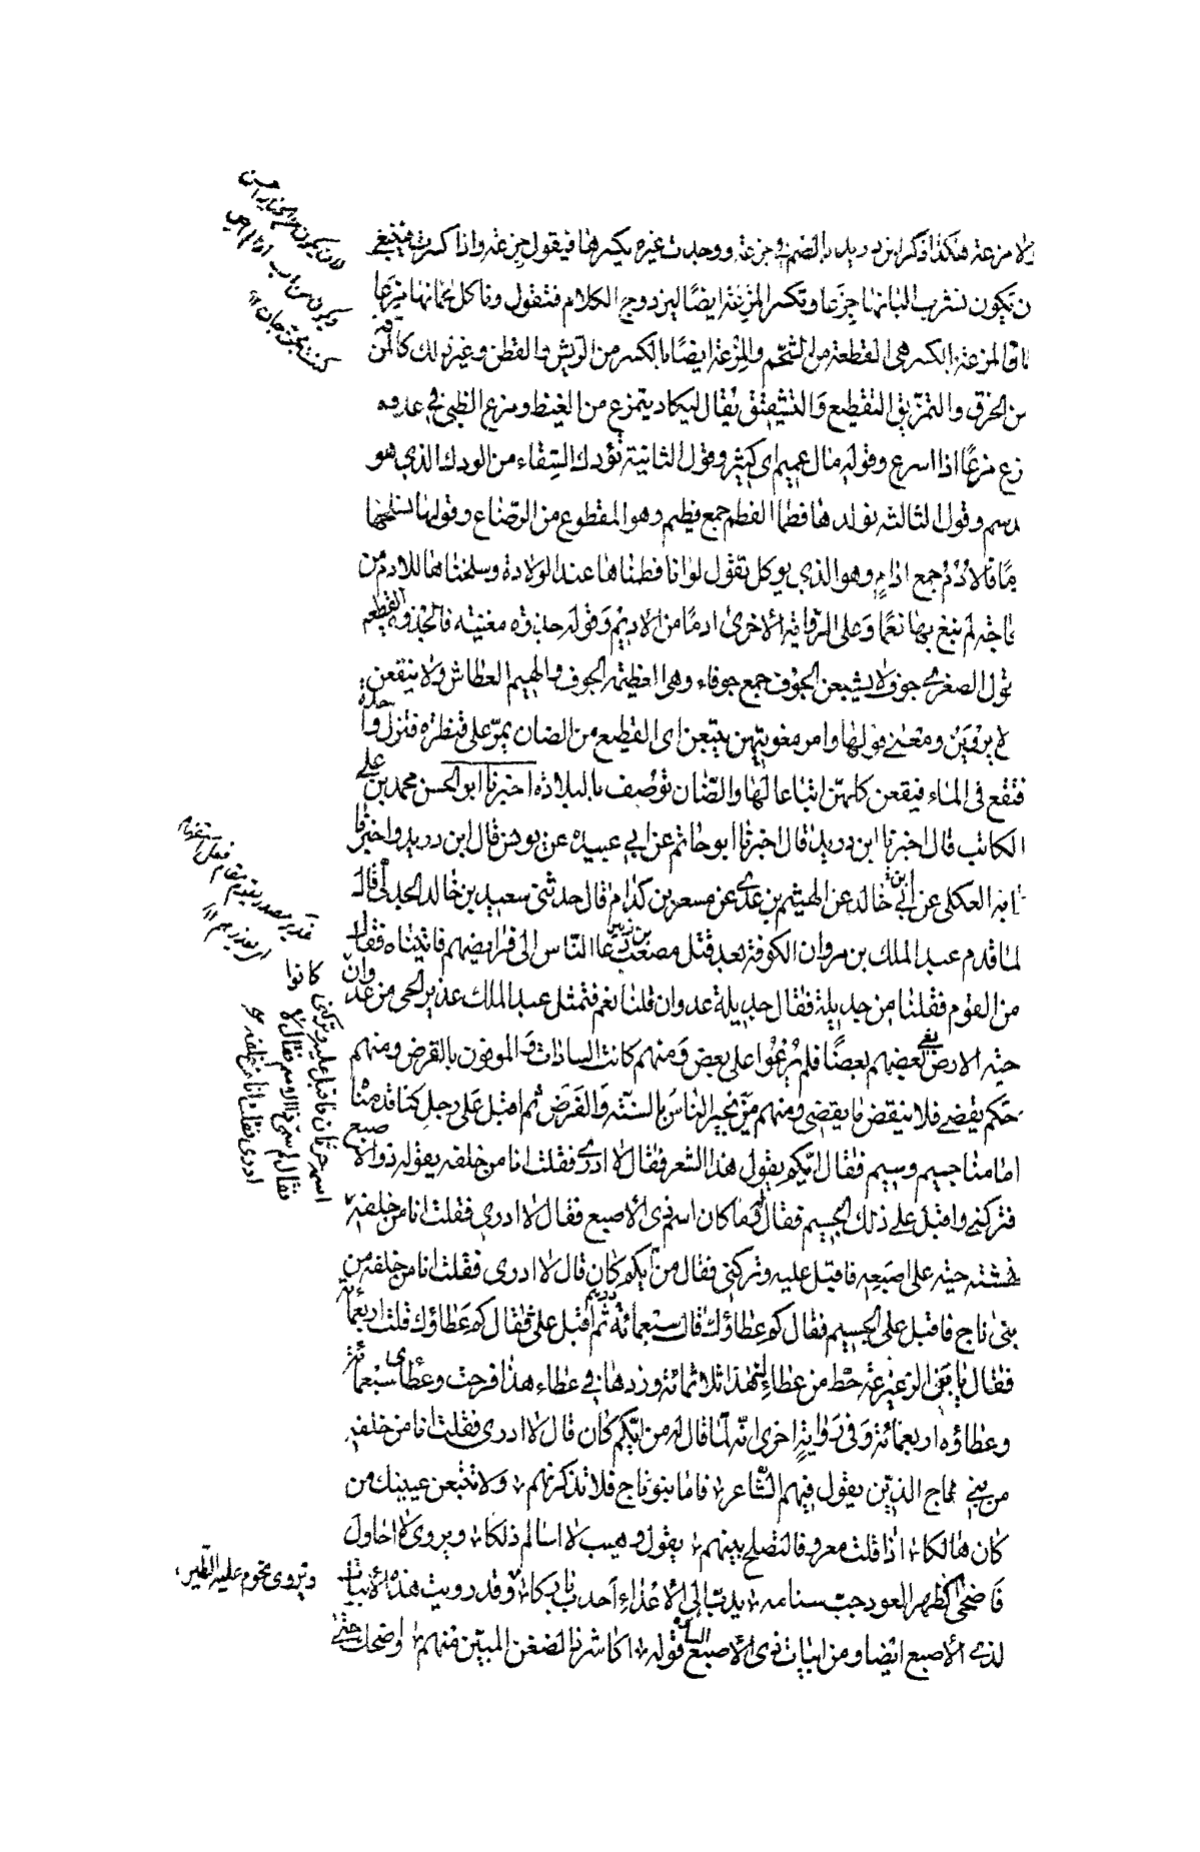 ولا مزعة هكذا ذكر ابن دريد بالضم في جزعة ووجدت غيره يكسرها فيقول جِزعة واذا كسرت فينبغي
ن تكون نشرب البانها جِزَعا وتكسر المزعة ايضًا ليزدوج الكلام فتقول وناكل لحمانها مِزَعا
فالمزعة بالكسر هي القطعة من الشحم والمزعة ايضًا بالكسر من الريش والقطن وغير ذلك كالمزقة
من الخرق والتمزيق التقطيع والتشقيق يُقال ليكاد يتمزع من الغيظ ومزع الظبي في عدوه
زع مزعًا اذا اسرع وقوله مال عميم اي كثير وقول الثانية نؤدك السقاء من الودك الذي هو
دسم وقول الثالثة نولدها فطما الفطم جمع فطيم وهو المقطوع من الرضاع وقولها نسلخها
مًا فالأُدُم جمع ادام وهو الذي يوكل تقول لو انا فطمناها عند الولادة وسلخناها للادم من
حاجة لم نبغ بها نعمًا وعلى الرواية الأخرى ادمًا من الاديم وقوله جذوة مغنية فالجذوة القطعة
قول الصغرى جوف لا يشبعن الجوف جمع جوفاء وهي العظيمة الجوف والهيم العطاش ولا ينقعن
لا يروين ومعنى قولها وامر مغويتهن يتبعن اى القطيع من الضان يمرّ على قنطرة فتزل واحدة
فتقع فى الماء فيقعن كلهن اتباعا لها والضان توصف بالبلادة اخبرنا ابو الحسن محمد بن علي
الكاتب قال اخبرنا ابن دريد قال اخبرنا ابو حاتم عن ابي عبيدة عن يونس قال ابن دريد واخبرنا
به العكلي عن ابن ابي خالد عن الهيثم بن عدي عن مسعر بن كدام قال حدثنى سعيد بن خالد الجدلي قال
لما قدم عبد الملك بن مروان الكوفة بعد قتل مصعب بن الزبير دعا الناس الى فرائضهم فاتيناه فقال
من القوم فقلنا من جديلة فقال جديلة عدوان قلنا نعم فتمثل عبد الملك عذير الحى من عدوان
حية الارض بغى بعضهم بعضًا فلم يُرعُوا على بعض ومنهم كانت السادات والموفون بالقرض ومنهم
حكم يقضي فلا ينقض ما يقضى ومنهم من يجيز الناس بالسنة والفرض ثم اقبل على رجل كنا قدمناه
امامنا جسيم وسيم فقال ايكم يقول هذا الشعر فقال لا ادري فقلت انا من خلفه يقوله ذو الاصبع
فتركني واقبل على ذلك الجسيم فقال وما كان اسم ذى الاصبع فقال لا ادري فقلت انا من خلفه
نهشته حية على اصبعه فاقبل عليه وتركني فقال من ايكم كان قال لا ادرى فقلت انا من خلفه من
بنى ناج فاقبل على الجسيم فقال كم عطاؤك قال سبعمائة درهم ثم اقبل علي فقال كم عطاؤك قلت اربعمائة
فقال يا بن الزعيزعة حط من عطاء هذا ثلاثمائة وزدها في عطاء هذا فرحت وعطائى سبعمائة
وعطاؤه اربعمائة وفى رواية اخرى انه لما قال له من ايكم كان قال لا ادرى فقلت انا من خلفه
من بني ناج الذين يقول فيهم الشاعر فاما بنو ناج فلا تذكرنهم ولا تتبعن عينيك من
كان هالكا اذا قلت معروفا لتصلح بينهم يقول وهيب لا اسالم ذلكا ويروى لا احاول
فاضحى كظهر العود جب سنامه يدب الى الاعداء احدب باركا وقد رويت هذه الابيات
لذي الأصبع ايضا ومن ابيات ذى الاصبع السائرة قوله اكاشر ذا الضغن المبين منهم واضحك حتى
لان يكون
ويكون من باب
كنت
عذير مصدر بتقديم مقام فعل
كانوا
اسمه حرثان فاقبل عليه وتركنى
فقال لم سمي ذا الاصبع فقال لا
ادرى فقلت انا من خلفه
ويروى تحوم عليه الطير